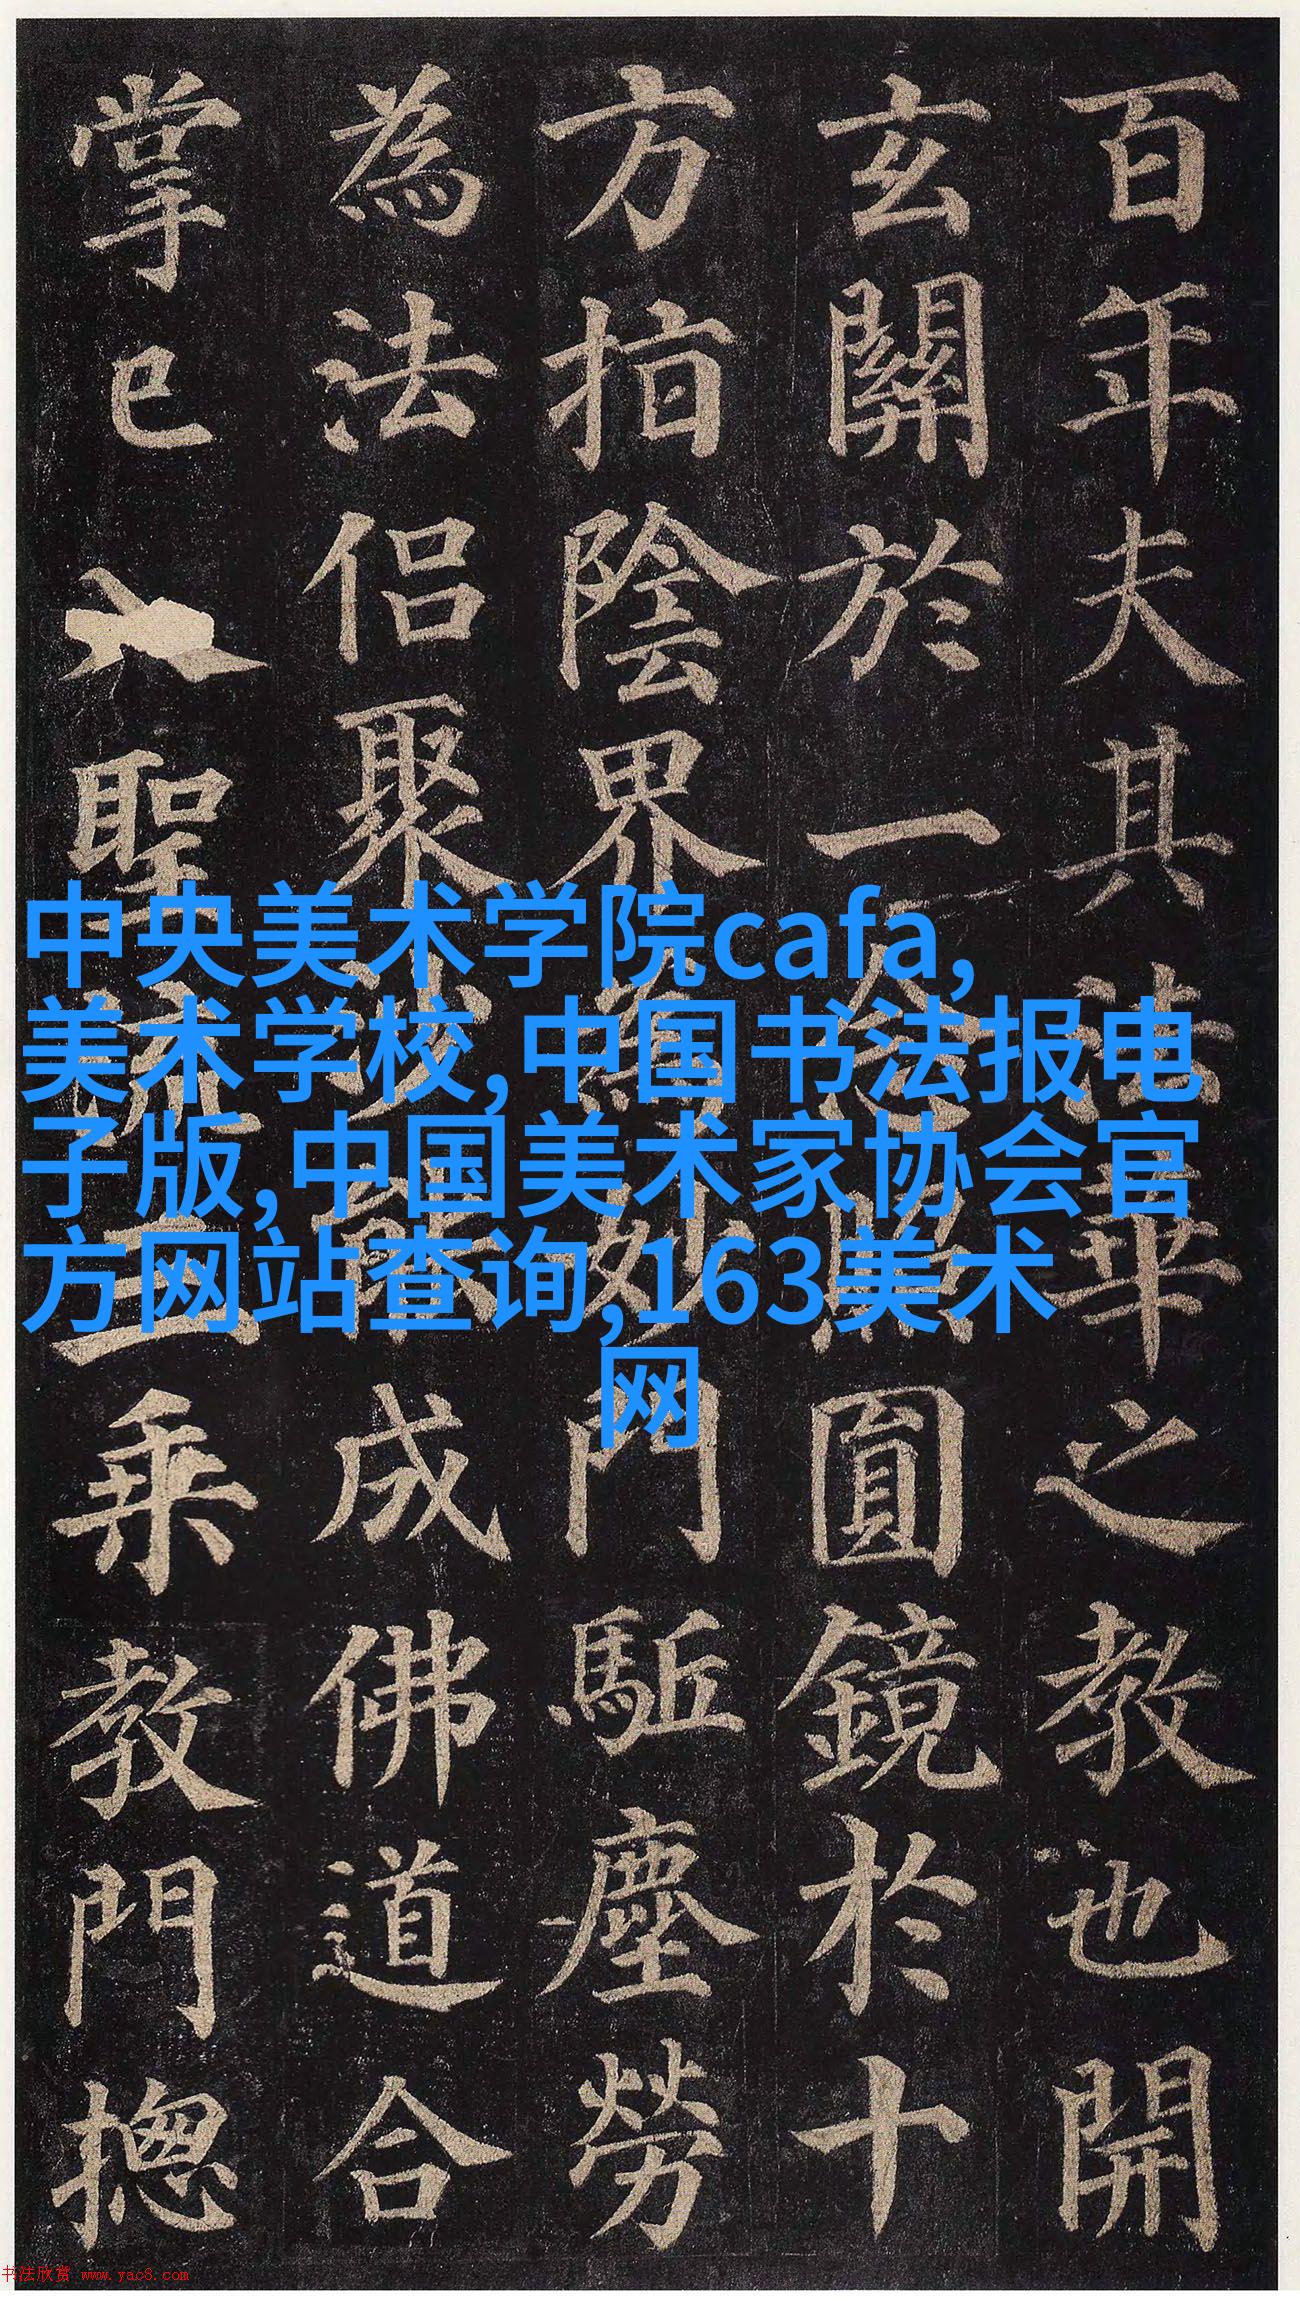 百年夫其法華之教也開
玄關於一念照圓鏡於十
方指陰界為妙門駈塵勞
為法侶聚沙能成佛道合
掌已入聖流三乘教門揔
中央美术学院cafa,
美术学校,中国书法报电
子版,中国美术家协会官
方网站查询,163美术
网
书法欣赏 www.yac8.com